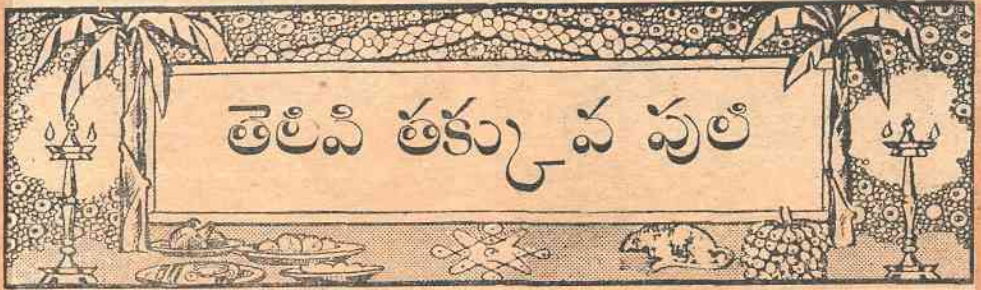 తెలివి తక్కువ పులి